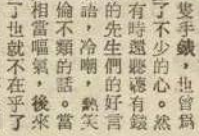 隻手錶，也曾爲
了不少的心。然
有時還聽聽有錢
的先生們的好言
語，冷嘲，熱笑
倫不類的話。當
相當嘔氣，後來
了也就不在乎了